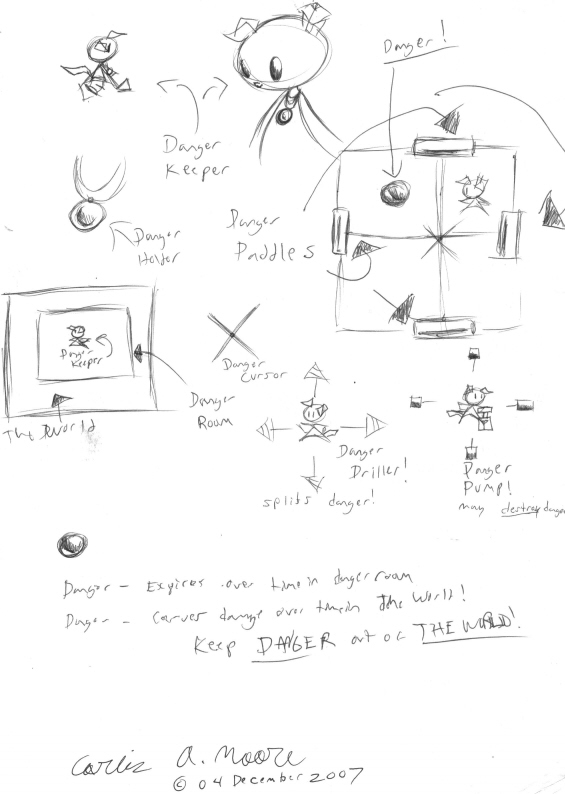 Danger!
Danger
Keeper
Danger
Holder
Danger
Paddles
Danger
Keeper
Danger
Cursor
Danger
Room
The World
Danger
Driller!
splits danger!
Danger
Pump!
may destroy danger
Danger - Expires over time in danger room
Danger - Causes damage over time in the World!
Keep DANGER out of THE WORLD!
Carlis A. Moore
© 04 December 2007